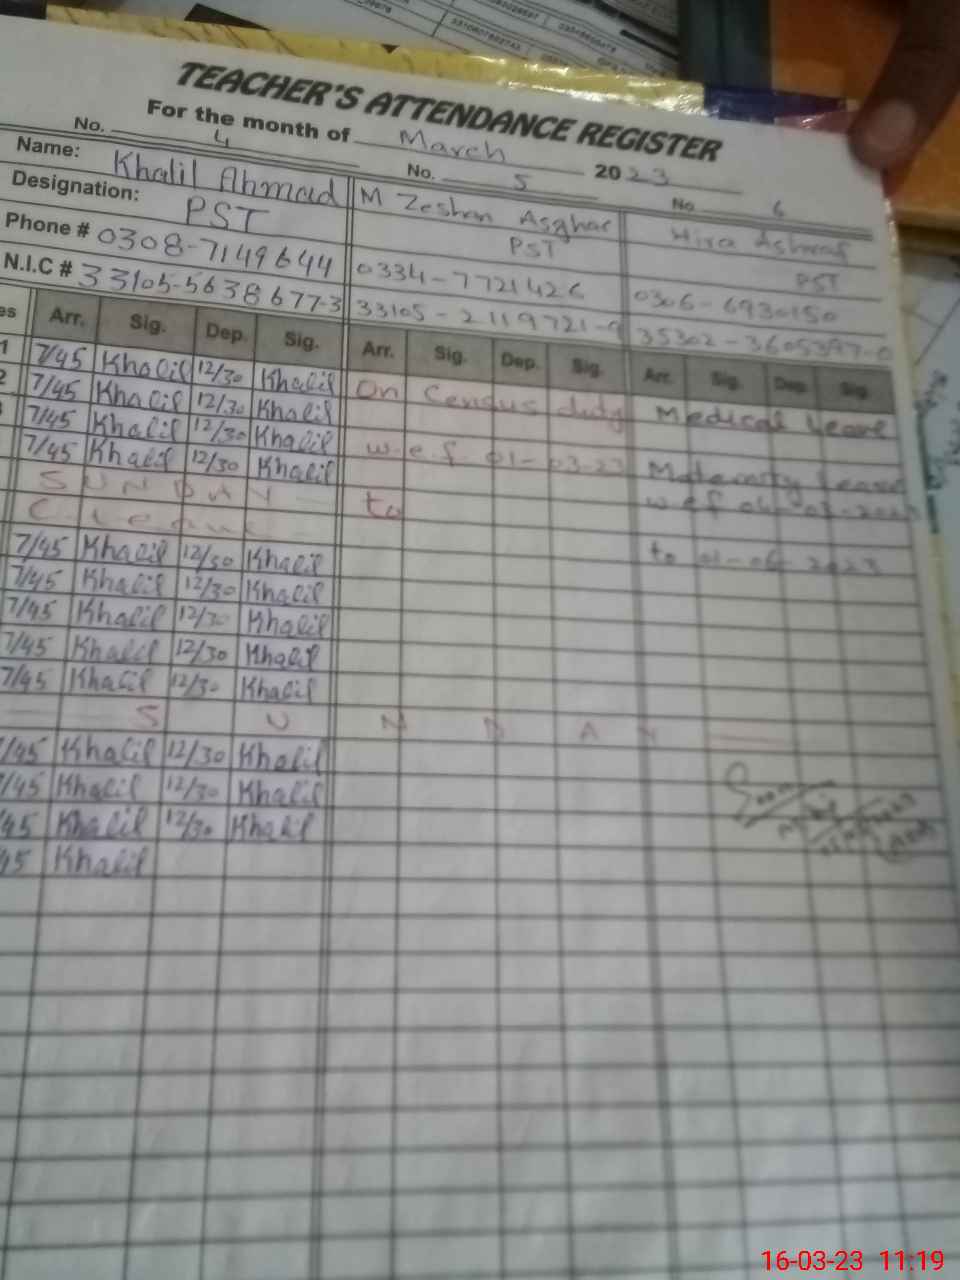 TEACHER'S ATTENDANCE REGISTER
For the month of March 2023
No. 4 No. 5 No 6
Name: Khalil Ahmad M Zeshan Asghar Hira Ashraf
Designation: PST PST PST
Phone # 0308-7149644 0334-7721426 0306-6930150
N.I.C # 33105-5638677-3 33105-2119721-9 35302-3605397-0
es Arr. Sig. Dep. Sig. Arr. Sig. Dep. Sig. Arr. Sig. Dep Sig.
1 7/45 Khalil 12/30 Khalil On Census duty Medical Leave
2 7/45 Khalil 12/30 Khalil
7/45 Khalil 12/30 Khalil w.e.f 01-03-23 Maternity Leave
7/45 Khalil 12/30 Khalil w.e.f 04-03-2023
SUNDAY to
C-Leave
7/45 Khalil 12/30 Khalil to 01-06-2023
7/45 Khalil 12/30 Khalil
7/45 Khalil 12/30 Khalil
7/45 Khalil 12/30 Khalil
7/45 Khalil 12/30 Khalil
S U N D A Y
7/45 Khalil 12/30 Khalil
7/45 Khalil 12/30 Khalil
45 Khalil 12/30 Khalil
45 Khalil
16-03-23 11:19